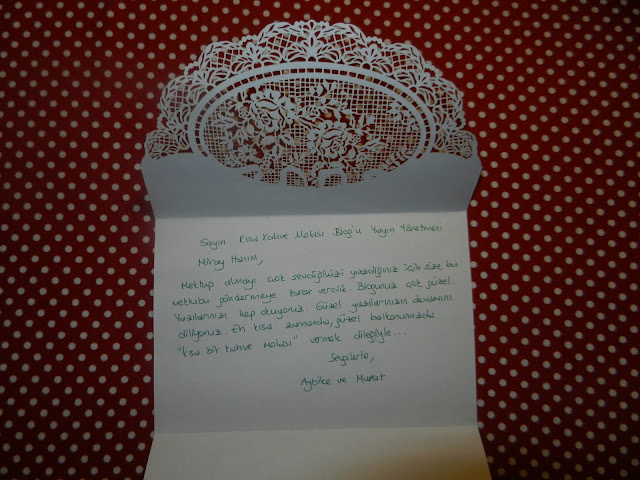 Sayın Kısa Kahve Molası Blog'u Yayın Yönetmeni
Miray Hanım,
Mektup almayı çok sevdiğinizi yazdığınız için size bu
mektubu göndermeye karar verdik. Blogunuz çok güzel.
Yazılarınızı hep okuyoruz. Güzel yazılarınızın devamını
diliyoruz. En kısa zamanda, güzel balkonunuzda
"kısa bir kahve molası" vermek dileğiyle...
Sevgilerle,
Aybike ve Murat